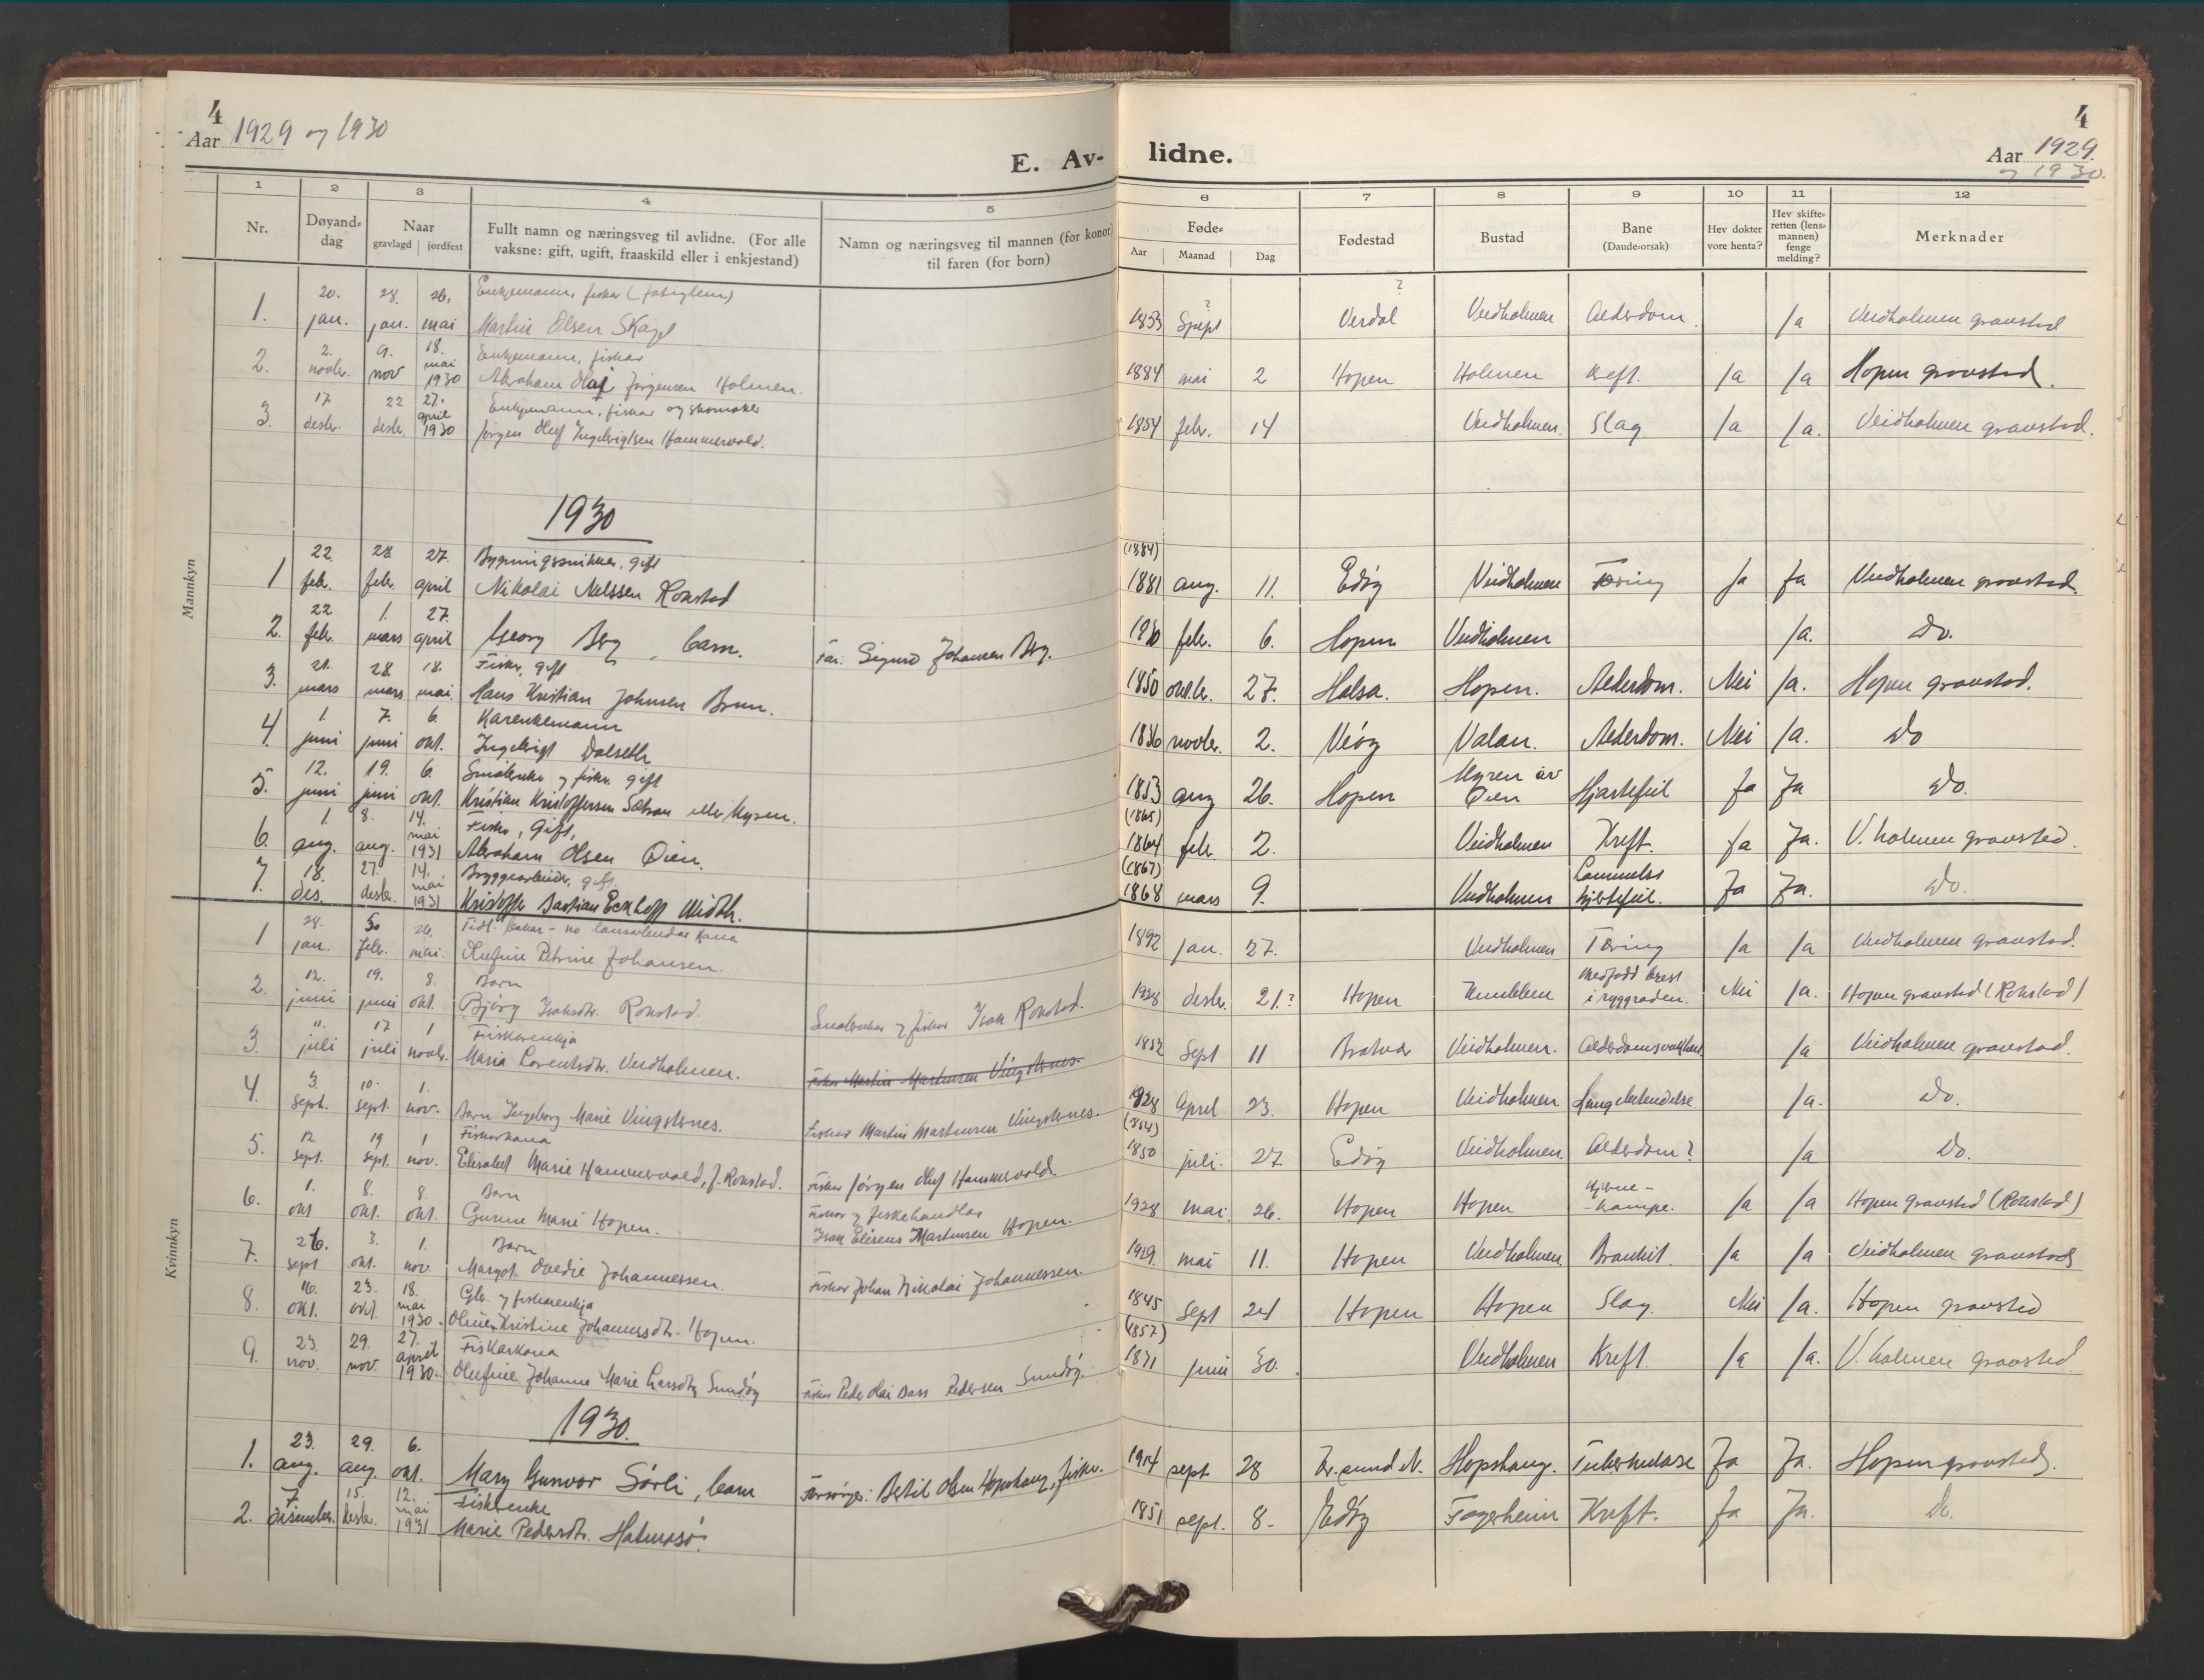 4
Aar 1929 og 1930
E. Av-
lidne.
4
Aar 1929
og 1930.
1 2 3 4 5 6 7 8 9 10 11 12
Nr.
Døyand-
dag
Naar
gravlagd jordfest
Fullt namn og næringsveg til avlidne. (For alle
vaksne: gift, ugift, fraaskild eller i enkjestand)
Namn og næringsveg til mannen (for konor)
til faren (for born)
Føde-
Aar Maanad Dag
Fødestad
Bustad
Bane
(Daude-orsak)
Hev dokter
vore henta?
Hev skifte-
retten (lens-
mannen)
fenge
melding?
Merknader
Mannkyn
20. 28. 26. Enkjemann, fiskar
1. jan. jan. mai Martin Olsen 1853 ? Verdal ? Veidholmen Alderdom. Ja Veidholmen gravstad
2. 9. 18. Enkjemann, fiskar
2. novbr. nov mai 1930 Abraham Olaf Jørgensen Holmen. 1884 mai 2 Hopen Holmen Kreft. Ja Ja Hopen gravstad.
17 22 27. Enkjemann, fiskar og skomaker
3. desbr. desbr. april 1930 Jørgen Oluf Ingebrigtsen Hammervold. 1854 febr. 14 Veidholmen. Slag Ja Ja. Veidholmen gravstad.
1930
22. 28 27. Bygningssnikker, gift (1884)
1 febr. febr. april Nikolai Nilssen Rokstad 1881 aug. 11. Edøy Veidholmen Tæring Ja Ja Veidholmen gravstad.
22 1. 27.
2. febr. mars april Georg Berg, barn. Far: Sigurd Johansen Berg. 1930 febr. 6. Hopen Veidholmen Ja. Do.
21. 28. 18. Fisker, gift
3. mars mars mai. Hans Kristian Johnsen Brun. 1850 oktbr. 27. Halsa. Hopen. Alderdom. Nei Ja. Hopen gravstad.
1. 7. 6. Kårenkemann
4. juni juni okt. Ingebrigt Dalseth 1836 novbr. 2. Veiøy Valan. Alderdom. Nei Ja. Do
12. 19. 6. Småbruker og fisker gift
5. juni juni okt. Kristian Kristoffersen Sætran eller Myren. 1853 aug 26. Hopen Myren av Øien Hjartefeil Ja Ja Do.
1. 8. 14. Fisker, Gift, (1865)
6. aug. aug. mai 1931 Abraham Olsen Øien. 1864 febr. 2. Veidholmen Kreft. Ja Ja. V.holmen gravsted.
18. 27. 14. Bryggearbeider, gift. (1867)
7. des. desbr. mai 1931 Kristoffer Bastian Eckhoff Weidh. 1868 mars 9. Veidholmen Lammelse hjertefeil. Ja Ja. Do.
Kvinnkyn
28. 26.
1 jan. febr. mai. Olufine Petrine Johansen. 1892 jan. 27. Veidholmen Tæring Ja Ja Veidholmen gravstad.
12. 19. 8. Barn
2. juni juni okt. Bjørg Isaksdtr. Rokstad. Småbrukar og fiskar Isak Rokstad. 1928 desbr. 21? Hopen Medfødd brest i ryggraden. Nei Ja. Hopen gravstad (Rokstad)
11. 17 1 Fiskarenkja
3. juli juli novbr. Maria Lorentsdtr. Veidholmen. Fiskar Martin Martinsen Vingsternes. 1852 Sept 11 Bratvær Veidholmen. Ja Veidholmen gravstad.
3. 10. 1.
4. Sept. sept. nov. Barn Ingeborg Marie Vingsternes. Fiskar Martin Martinsen Vingsternes. 1928 April 23. Hopen Veidholmen Lungebetendelse Ja. Do.
12. 19 1 Fiskarkona (1854)
5. sept. sept. nov. Elisabet Marie Hammervold, f. Rokstad. Fiskar Jørgen Oluf Hammervold. 1850 juli. 27 Edøy Veidholmen Alderdom? Ja Do.
1. 8. 8. Barn Fiskar og fiskehandlar
6. okt okt. okt. Gunne Marie Hopen. Isak Elisens Martinsen Hopen. 1928 mai. 26. Hopen Hopen Hjerne-
-krampe. Ja Ja Hopen gravstad (Rokstad)
26. 3. 1. Barn
7. sept okt. nov. Margot Ovedie Johannessen. Fiskar Johan Nikolai Johannessen. 1929. mai 11. Hopen Veidholmen Bronkit. Ja Ja Veidholmen gravstad
16. 23. 18. Gbr. og fiskarenkja
8. okt. okt mai 1930. Oline Kristine Johannesdtr. Hopen. 1845 sept 24 Hopen Hopen Slag. Nei Ja. Hopen gravsted
23. 29. 27. Fiskarkona (1857)
9. nov. nov. april 1930. Olufine Johanna Marie Larsdtr Sundøy Fiskar Peder Olai Bass Pedersen Sundøy. 1871 juni 30. Veidholmen Kreft. Ja Ja. V.holmen gravsted
1930.
23. 29. 6.
1. aug. aug. okt. Mary Gunvor Sørli, barn Forsørger: Betil Olsen Hopshaug, fisker. 1914 sept 28 Kr.sund N. Hopshaug. Tuberkulose Ja Ja. Hopen gravsted.
7. 15. 12. Fiskerenke
2. desember. desbr. mai 1931 Marie Pedersdtr. Halmøsø. 1851 sept. 8. Edøy Fagerheim Kreft. Ja Ja. Do.